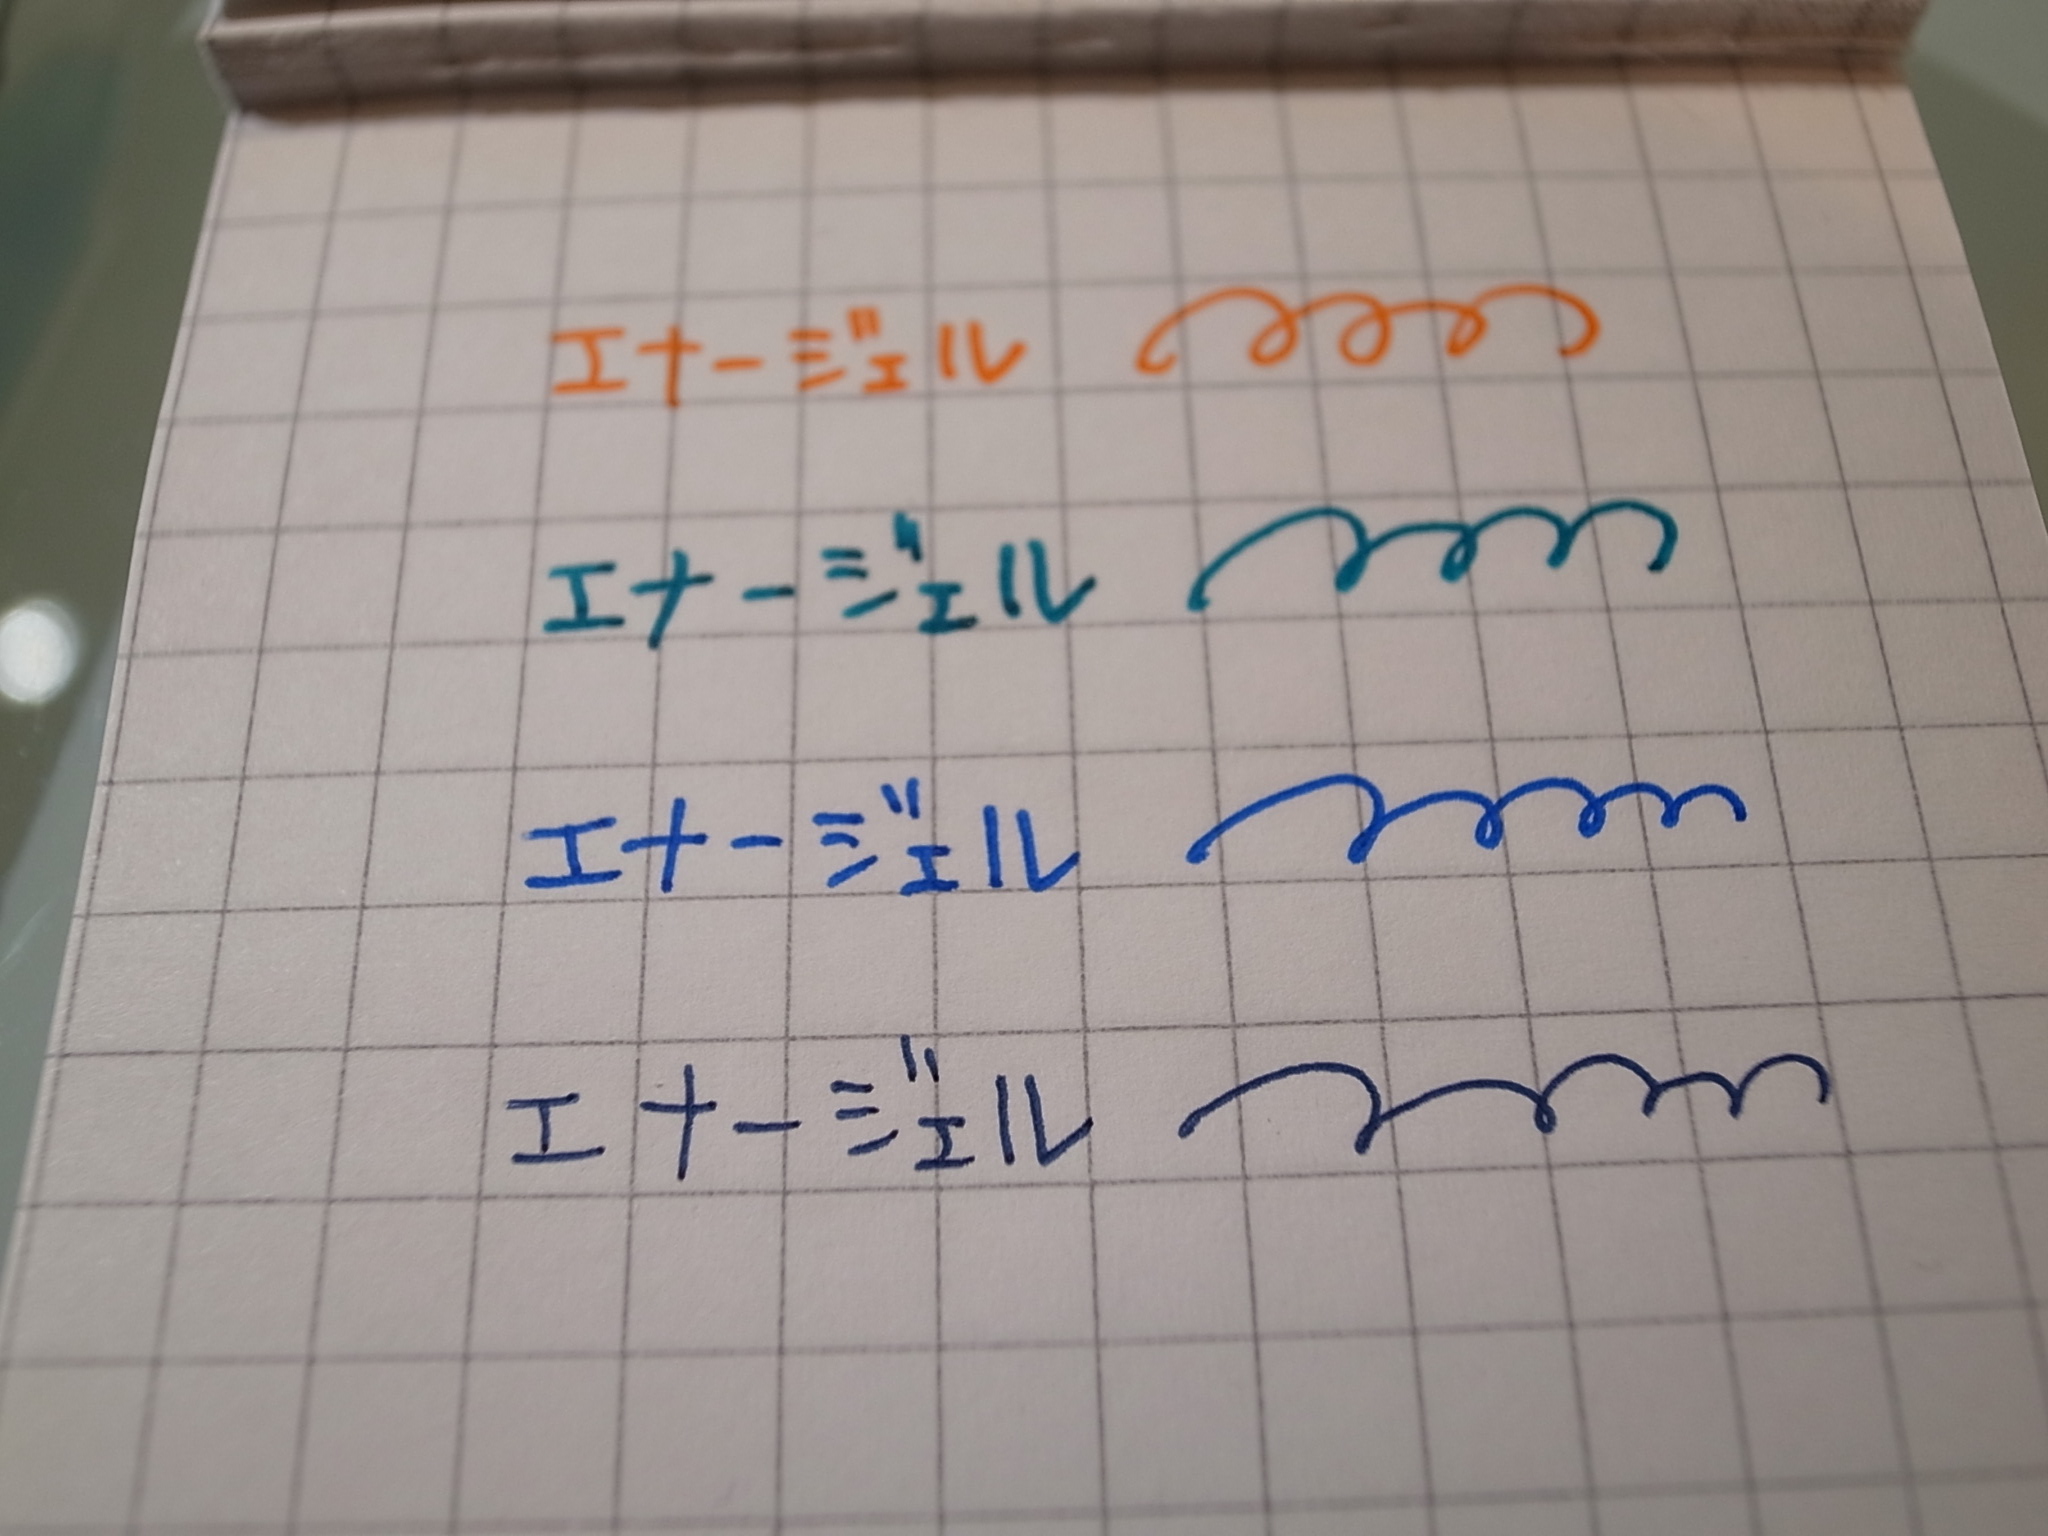 エナージェル
エナージェル
エナージェル
エナージェル